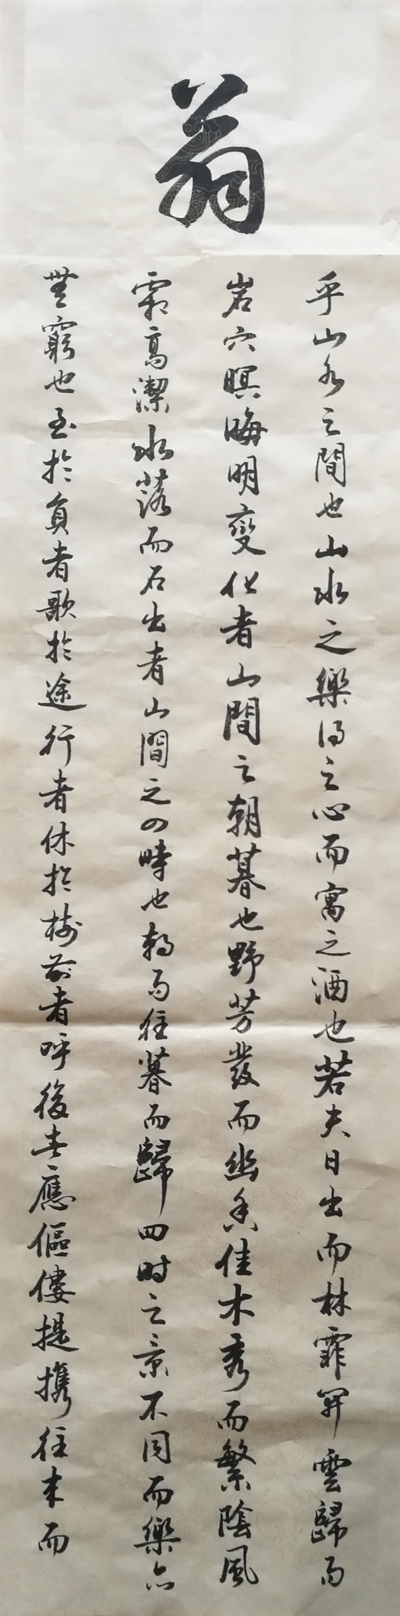 翁
乎山水之間也山水之樂得之心而寓之酒也若夫日出而林霏開雲歸而
岩穴暝晦明變化者山間之朝暮也野芳發而幽香佳木秀而繁陰風
霜高潔水落而石出者山間之四時也朝而往暮而歸四時之景不同而樂亦
無窮也至於負者歌於途行者休於樹前者呼後者應傴僂提攜往來而